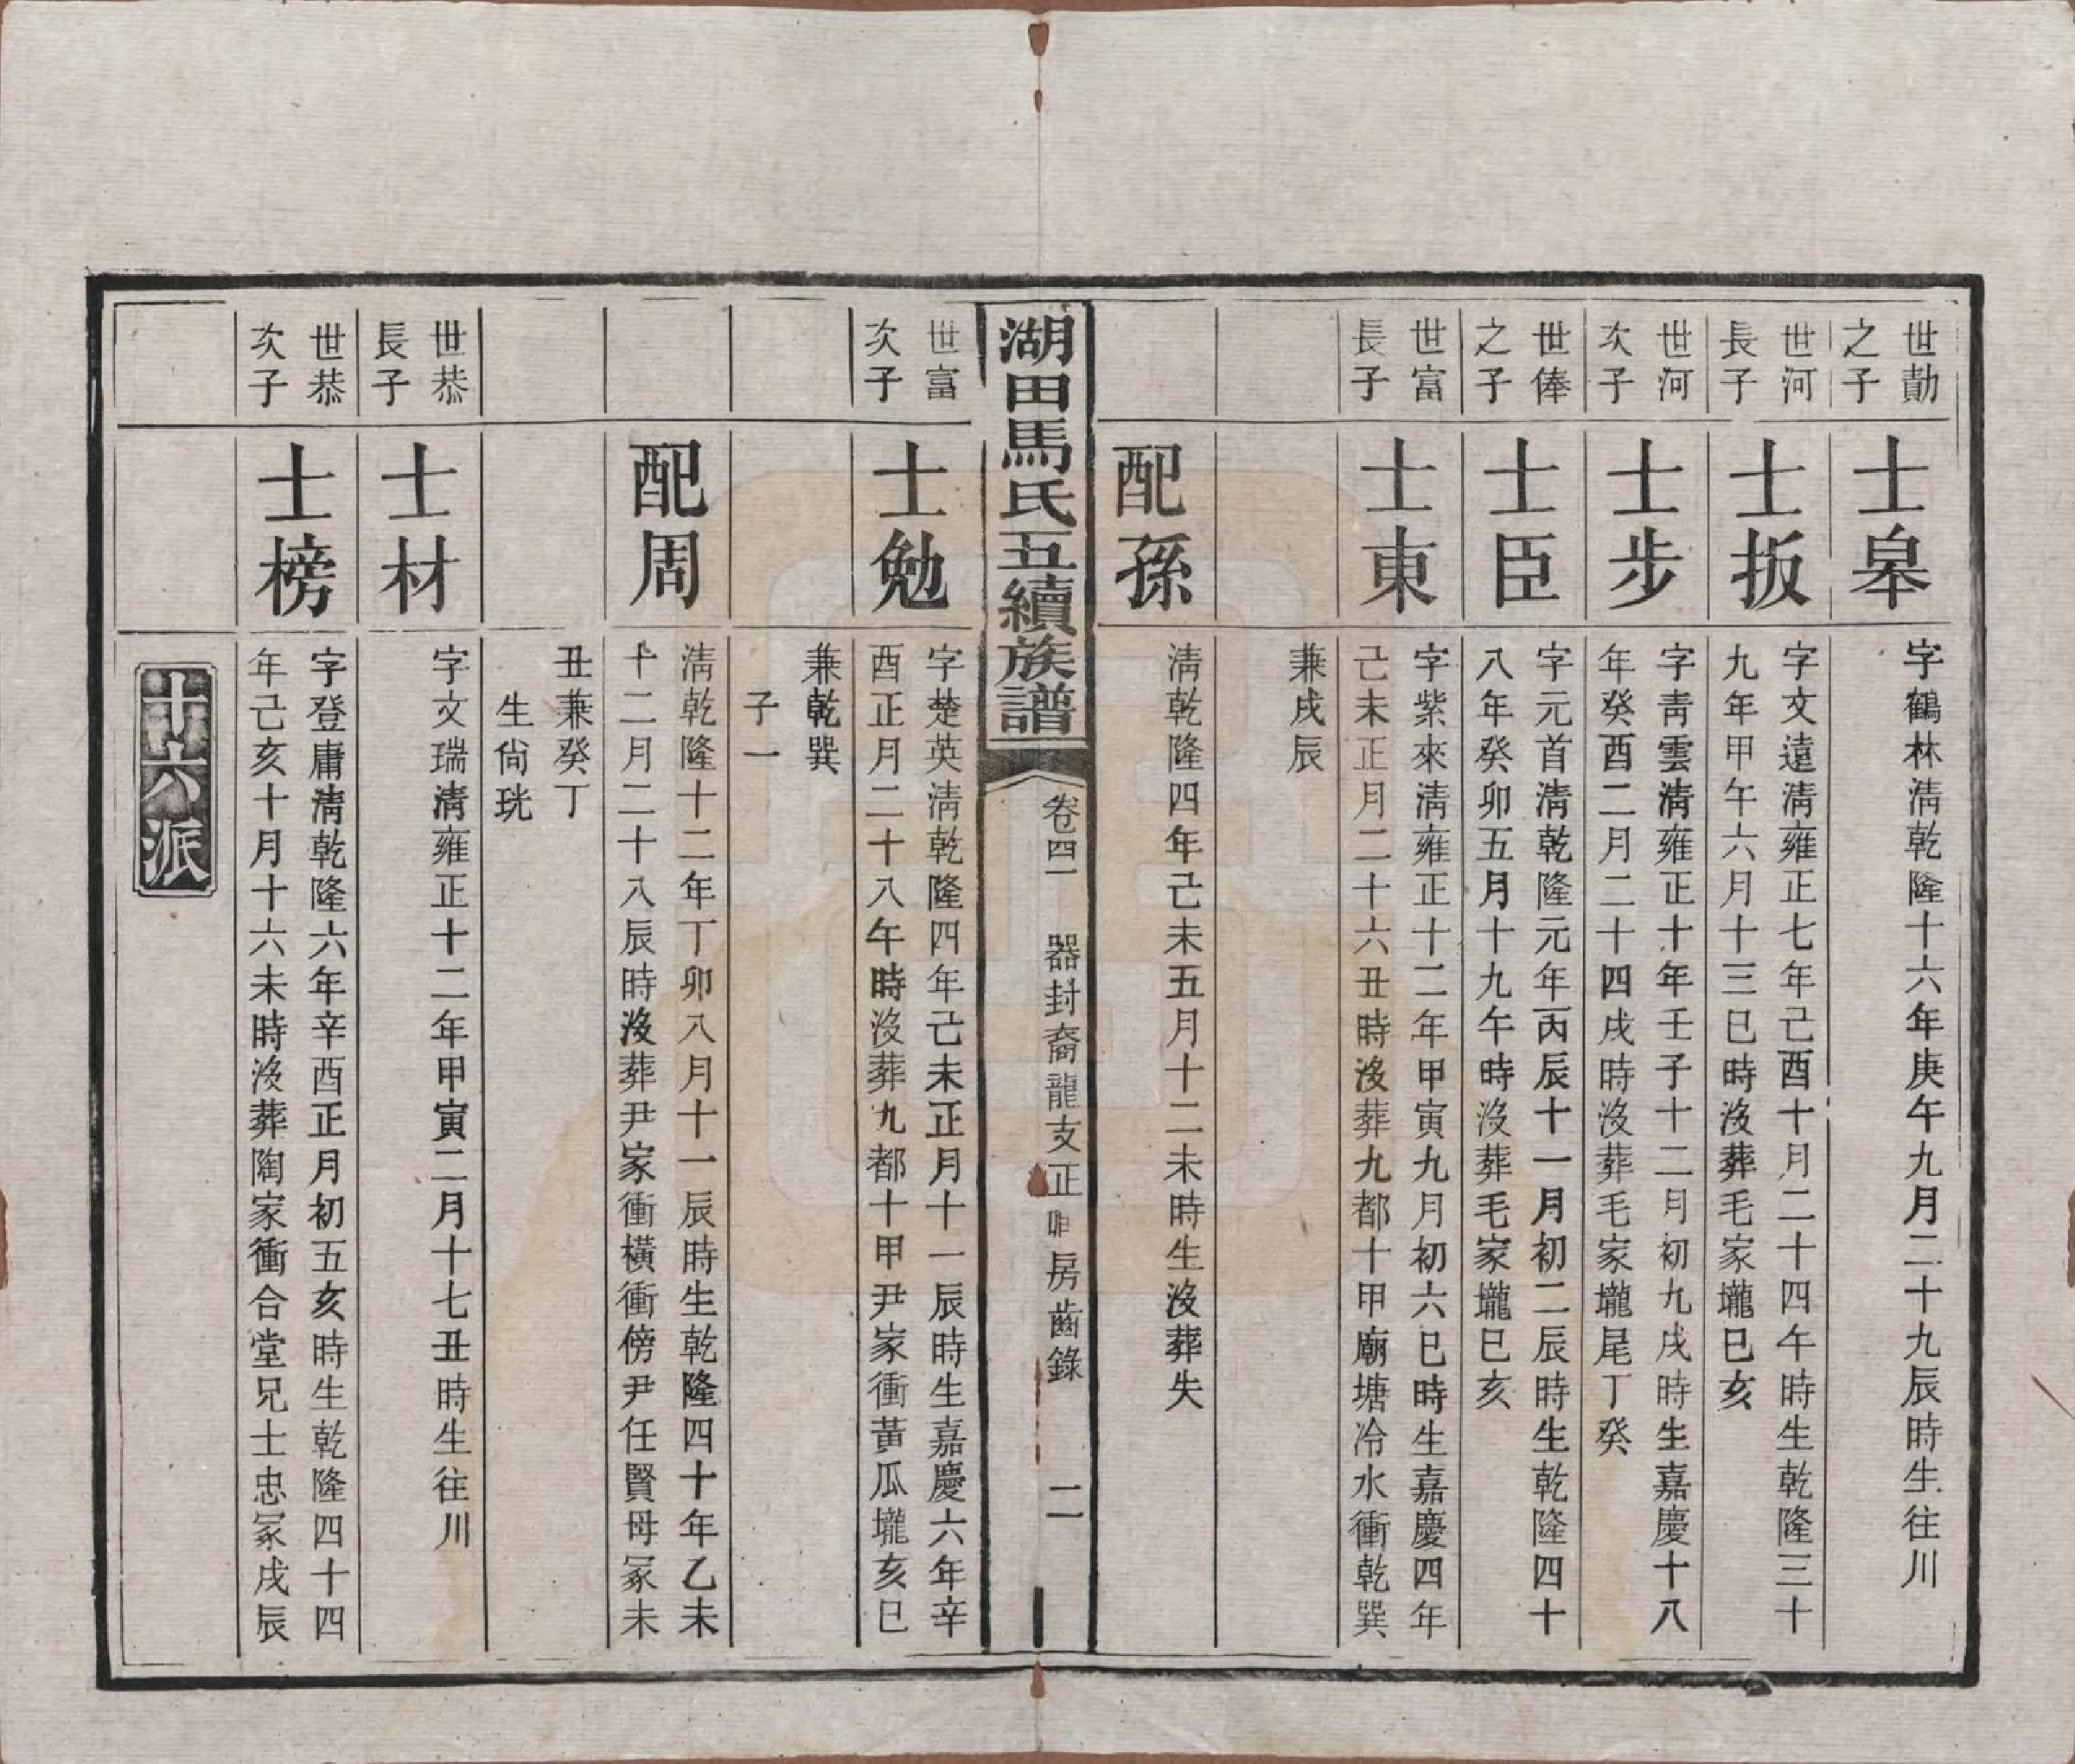 世勣
之子
士皋
字鶴林淸乾隆十六年庚午九月二十九辰時生往川
世河
長子
士扳
字文遠淸雍正七年己酉十月二十四午時生乾隆三十
九年甲午六月十三巳時沒葬毛家壠巳亥
世河
次子
士步
字靑雲淸雍正十年壬子十二月初九戌時生嘉慶十八
年癸酉二月二十四戌時沒葬毛家壠尾丁癸
世俸
之子
士臣
字元首淸乾隆元年丙辰十一月初二辰時生乾隆四十
八年癸卯五月十九午時沒葬毛家壠巳亥
世富
長子
士東
字紫來淸雍正十二年甲寅九月初六巳時生嘉慶四年
己未正月二十六丑時沒葬九都十甲廟塘冷水衝乾巽
兼戌辰
配孫
淸乾隆四年己未五月十二未時生沒葬失
湖田馬氏五續族譜
卷四一 器封裔龍支正房齒錄 二
世富
次子
士勉
字楚英淸乾隆四年己未正月十一辰時生嘉慶六年辛
酉正月二十八午時沒葬九都十甲尹家衝黃瓜壠亥巳
兼乾巽
子一
配周
淸乾隆十二年丁卯八月十一辰時生乾隆四十年乙未
十二月二十八辰時沒葬尹家衝橫衝傍尹任賢母冢未
丑兼癸丁
生尙珖
世恭
長子
士材
字文瑞淸雍正十二年甲寅二月十七丑時生往川
世恭
次子
士榜
字登庸淸乾隆六年辛酉正月初五亥時生乾隆四十四
年己亥十月十六未時沒葬陶家衝合堂兄士忠冢戌辰
十六派